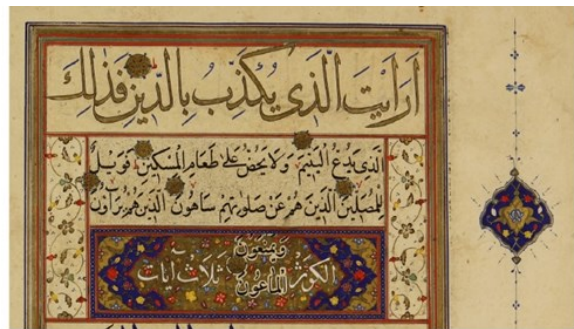 اَرَاَيْتَ الَّذى يُكَذِّبُ بِالدّينِ فَذٰلِكَ
الَّذى يَدُعُّ الْيَتيمَ وَلَا يَحُضُّ عَلٰى طَعَامِ الْمِسْكينِ فَوَيْلٌ
لِلْمُصَلّينَ الَّذينَ هُمْ عَنْ صَلٰوتِهِمْ سَاهُونَ الَّذينَ هُمْ يُرَاؤُنَ
وَيَمْنَعُونَ
الْمَاعُونَ
الكوثر ثلاث آيات